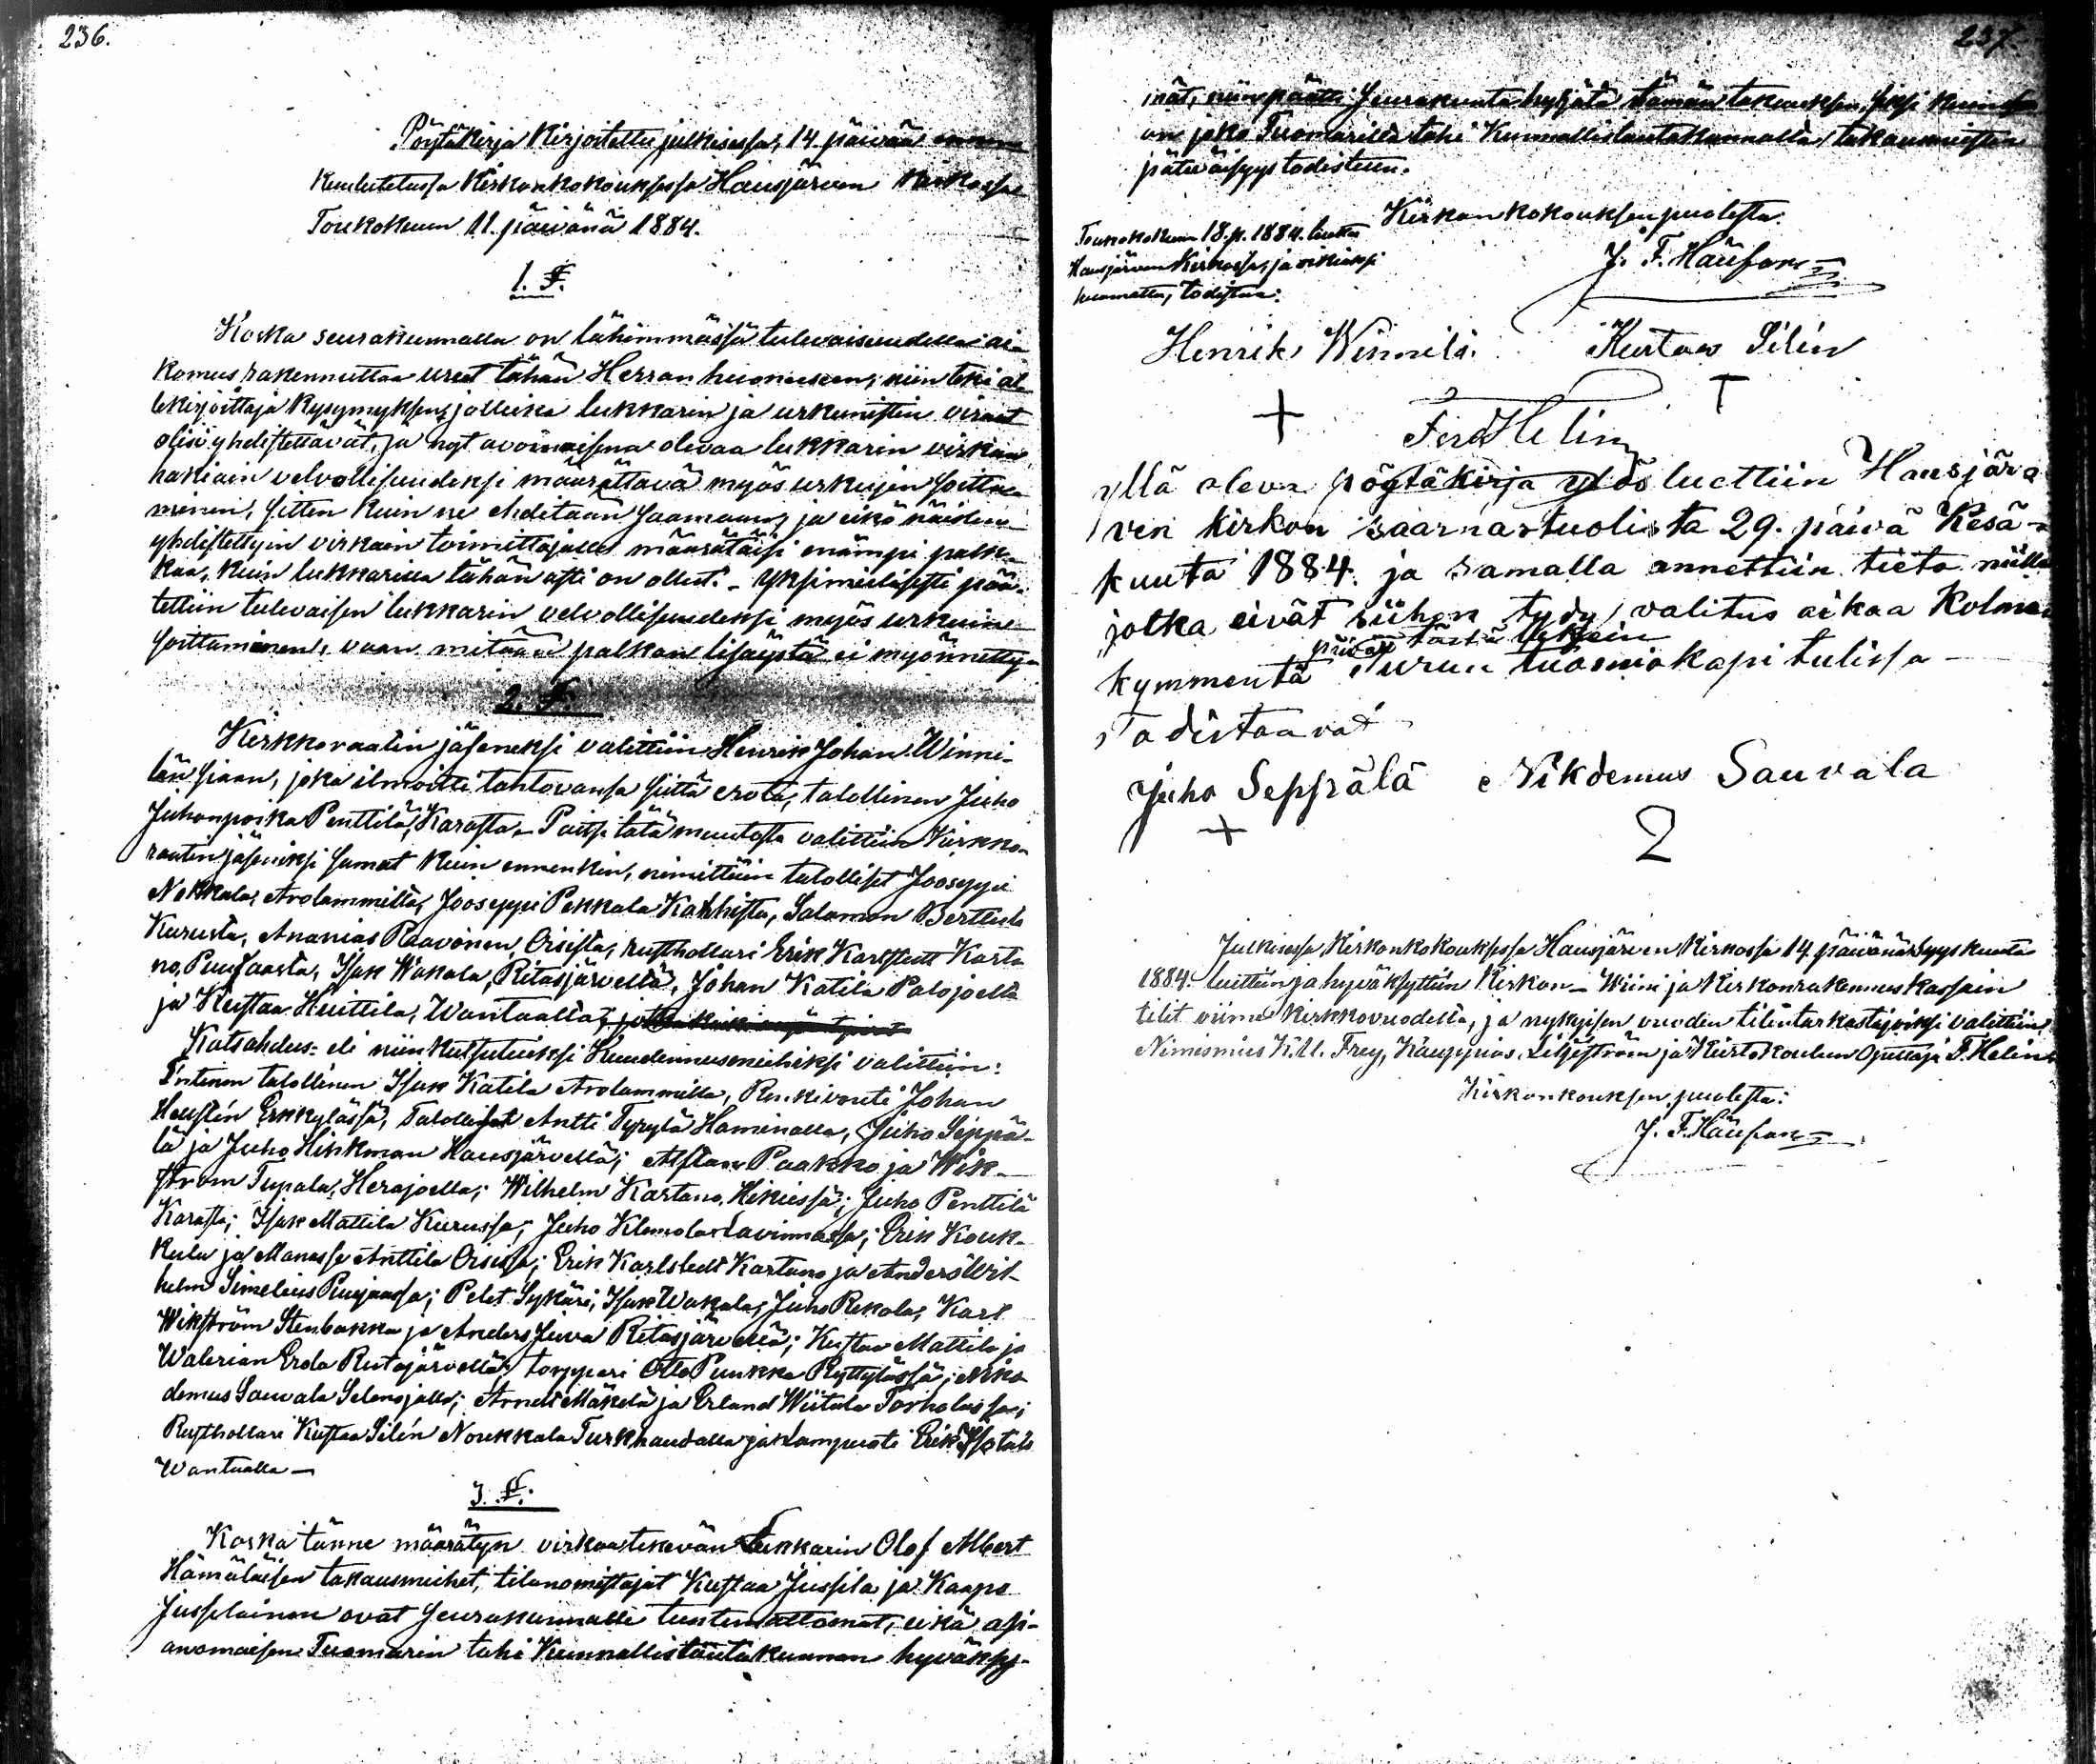 236.
Pöytäkirja Kirjoitettu julkisessa, 14. päivää ennen
kuulutetussa Kirkonkokouksessa Hausjärven Kirkossa
Toukokuun 11. päivänä 1884.
1. §.
Koska seurakunnalla on lähimmässä tulevaisuudella ai-
komus rakennuttaa urut tähän Herran huoneeseen, niin teki al-
lekirjoittaja kysymyksen, jolleika lukkarin ja urkunistin virat
olisi yhdistettävät, ja nyt avoinaisena olevaa lukkarin virkan
hakiain velvollisuudeksi määrättävä myös urkujen soitta-
minen, sitten kuin ne ehditään saamaan, ja eikö näiden
yhdistettyin virkain toimittajalle määrätäisi enämpi palk-
kaa, kuin lukkarilla tähän asti on ollut. - Yksimielisesti pää-
tettiin tulevaisen lukkarin velvollisuudeksi myös urkuin
soittaminen, vaan mitään palkan lisäystä ei myönnetty.
2. §.
Kirkkoraatin jäseneksi valittiin Henrik Johan Winni-
län siaan, joka ilmoitti tahtovansa siitä erota, talollinen Juho
Juhanpoika Penttilä, Karasta. - Paitsi tätä muutosta valittiin Kirkko-
raatin jäseniksi samat kuin ennenkin, nimittäin talolliset Jooseppi
Nokkala, Arolammilta, Jooseppi Pekkala Karhista, Salomon Berttula
Kurusta, Ananias Paavonen, Oisista, rusthollari Erik Karlstedt Karta
no, Puujaasta, Isak Wakala, Ritasjärveltä, Johan Katila Palojoelta
ja Kustaa Huittila, Wantaalta,
Katsahdus- eli niin kutsutuiksi Kuudennusmiehiksi valittiin:
talollinen Isak Katila Arolammilla, Johan
Erkkylässä, Talolliset Antti Tyrylä Haminalla, Juho Seppä-
lä ja Juho Hinkman Hausjärvellä; Paakko ja Wik-
ström Tupala, Herajoella; Wilhelm Kartano, Hikiässä; Juho Penttilä
Karasta; Isak Mattila Kurussa; Juho Klemola Lavinnassa; Erik Kouk-
kula ja Manasse Anttila Oisissa; Erik Karlstedt Kartano ja Anders Wil-
helm Simelius Puujaassa; Sykäri, Isak Wakala, Juho Rekola, Karl
Wikström Stenbakka ja Anders Juva Ritasjärvellä; Kustaa Mattila ja
Walerian Erola Ritasjärvellä; torppari Otto Puukka Ryttylässä; Niko
demus Sauvala Selänojalla; Mäkelä ja Erland Wiitala Torholassa;
Rusthollari Kustaa Silén Noukkala Turkhaudalla ja Erik
Wantaalla -
3. §.
Koska tänne määrätyn virkaatekevän Lukkarin Olof Albert
Hämäläisen takausmiehet, tilanomistajat Kustaa Jussila ja Kaapo
Jusslainen ovat seurakunnalle tuntemattomat, eikä asi-
anomaisen Tuomarin tahi Kunnallislautakunnan hyväksy-
237.
mät, niin päätti Seurakunta hyljätä tämän takauksen, siksi kuin se
on joko Tuomarilta tahi Kunnallislautakunnalta, takausmiesten
pätevaisyys todistettu.
Kirkonkokouksen puolesta:
J. F. Häufson
Toukokuun 18. p. 1884. luettu
Hausjärven Kirkossa, ja oikiaksi
huomattu, todistaa:
Henrik Winnilä. Kustaa Silén
Ferd Helin
yllä oleva pöytäkirja ylös luettiin Hausjär
ven kirkon saarnastuolista 29. päivä Kesä-
kuuta 1884. ja samalla annettiin tieto niille
jotka eivät siihen tydy, valitus aikaa Kolme
päivää tästä lukein
kymmentä Turun tuomiokapitulissa -
Todistaavat
Juho Seppälä Nikdemus Sauvala
Julkisessa Kirkonkokouksessa Hausjärven Kirkossa 14 päivänä Syyskuuta
1884. luettiin ja hyväksyttiin Kirkon- Wiini ja Kirkonrakennuskassain
tilit viime Kirkkovuodelta, ja nykyisen vuoden tilintarkastajoiksi valittiin
Nimismies K. U. Frey, Kauppias Liljeström ja Kiertokoulun Opettaja F. Helin
Kirkonkouksen puolesta:
J. F. Häufson